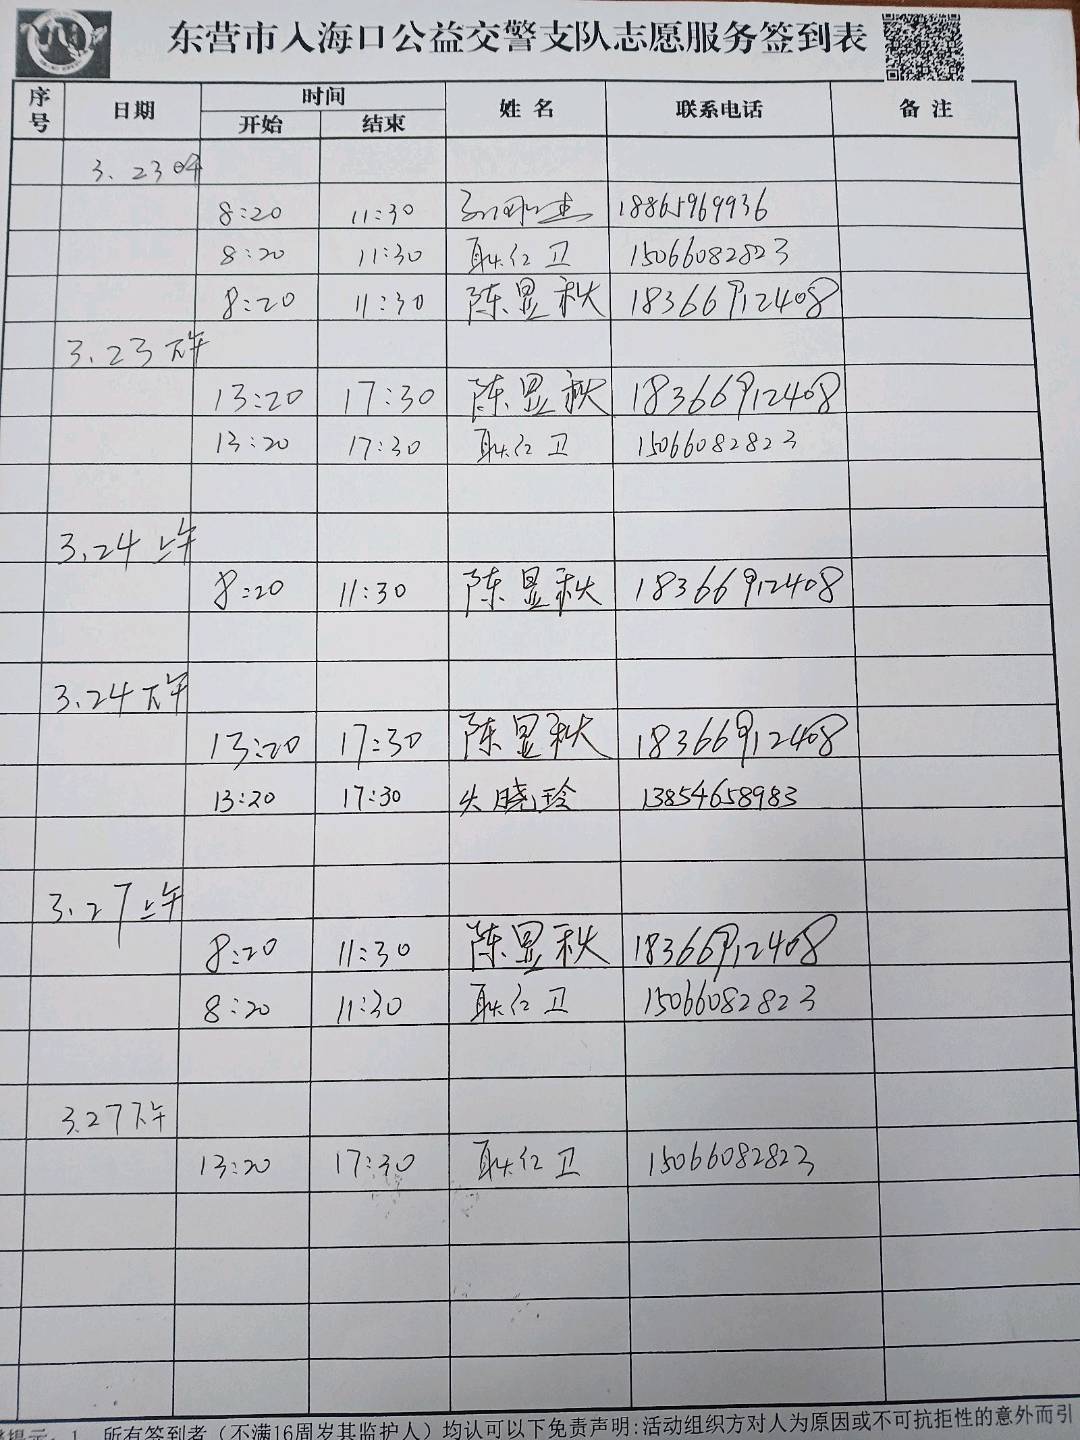 东营市入海口公益交警支队志愿服务签到表
序号 日期 时间 开始 结束 姓名 联系电话 备注
3.23
8:20 11:30 18865969936
8:20 11:30 耿仁卫 15066082823
8:20 11:30 陈显秋 18366912408
3.23 下午
13:20 17:30 陈显秋 18366912408
13:20 17:30 耿仁卫 15066082823
3.24 上午
8:20 11:30 陈显秋 18366912408
3.24 下午
13:20 17:30 陈显秋 18366912408
13:20 17:30 晓玲 13854658983
3.27 上午
8:20 11:30 陈显秋 18366912408
8:20 11:30 耿仁卫 15066082823
3.27 下午
13:20 17:30 耿仁卫 15066082823
提示：1、所有签到者（不满16周岁其监护人）均认可以下免责声明:活动组织方对人为原因或不可抗拒性的意外而引